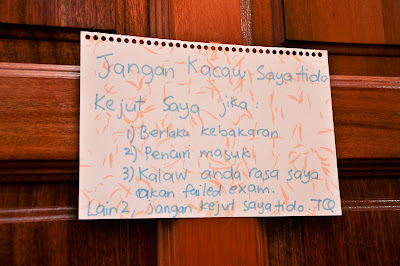 Jangan Kacaw Saya tido
Kejut Saya jika :
1) Berlaku kebakaran
2) Pencuri masuk
3) Kalaw anda rasa saya
akan failed exam.
Lain2, jangan kejut saya tido. TQ